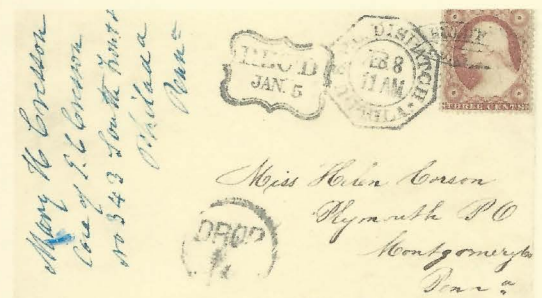 Mary H Cresson
Care of
Cresson
No 343 South
Philada
Penna
REC'D
JAN. 5
DISPATCH
FEB. 8
11 AM
PHILA
THREE CENTS
DROP
Miss Helen Corson
Plymouth P O
Montgomery Co
Penna